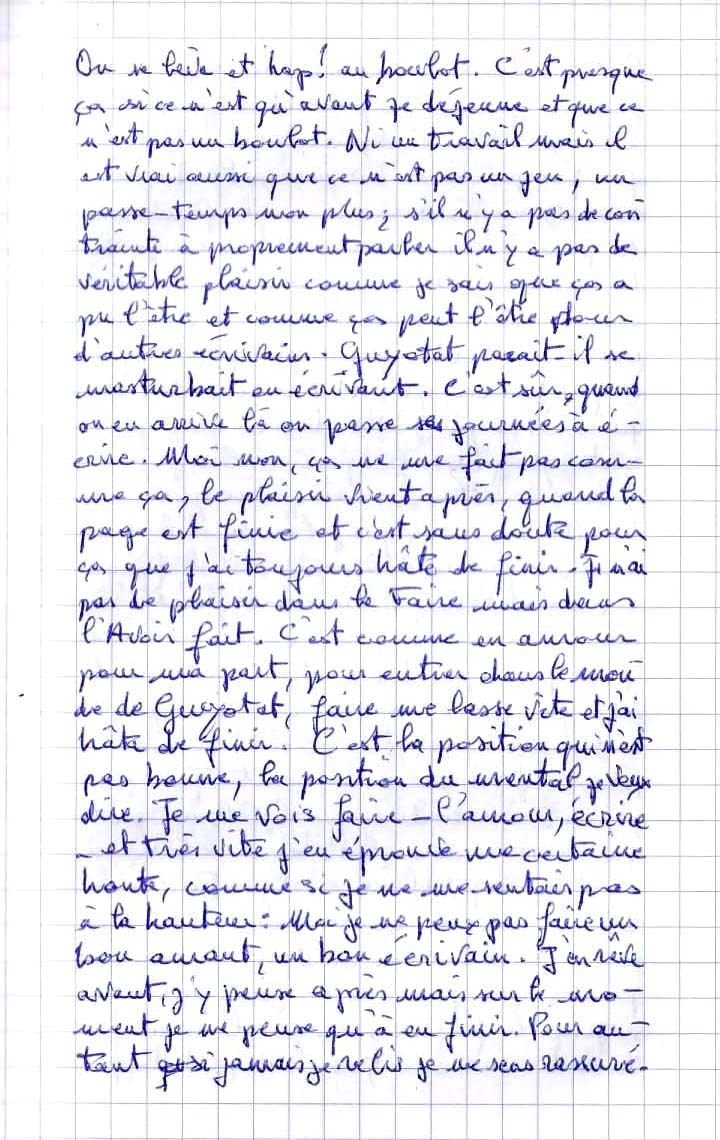 On se lève et hop! au boulot. C'est presque
ça si ce n'est qu'avant je déjeune et que ce
n'est pas un boulot. Ni un travail mais il
est vrai aussi que ce n'est pas un jeu, un
passe-temps non plus; s'il n'y a pas de con
trainte à proprement parler il n'y a pas de
véritable plaisir comme je sais que ça a
pu l'être et comme ça peut l'être pour
d'autres écrivains. Guyotat paraît-il se
masturbait en écrivant. C'est sûr, quand
on en arrive là on passe ses journées à é-
crire. Moi non, ça ne me fait pas com-
me ça, le plaisir vient après, quand la
page est finie et c'est sans doute pour
ça que j'ai toujours hâte de finir. Je n'ai
pas de plaisir dans le Faire mais dans
l'Avoir fait. C'est comme en amour
pour ma part, pour entrer dans le mon
de de Guyotat, faire me lasse vite et j'ai
hâte de finir. C'est la position qui n'est
pas bonne, la position du mental je veux
dire. Je me vois faire – l'amour, écrire
– et très vite j'en éprouve une certaine
honte, comme si je ne me sentais pas
à la hauteur: Moi je ne peux pas faire un
bon amant, un bon écrivain. J'en rêve
avant, j'y pense après mais sur le mo-
ment je ne pense qu'à en finir. Pour au-
tant si jamais je relis je me sens rassuré.